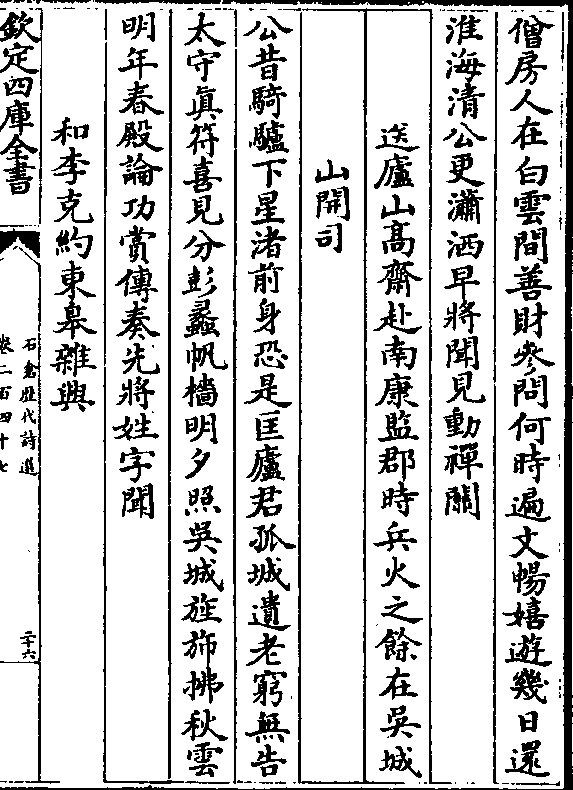 僧房人在白雲間善財參問何時遍文暢嬉遊幾日還
淮海清公更瀟洒早將聞見動禪關
送廬山髙齋赴南康監郡時兵火之餘在吳城
山開司
公昔騎驢下星渚前身恐是匡廬君孤城遺老窮無告
太守真符喜見分彭蠡帆檣明夕照吳城旌斾拂秋雲
明年春殿論功賞傳奏先將姓字聞
和李克約東皋雜興
欽定四庫全書
石倉歷代詩選
卷二百四十七
二十六